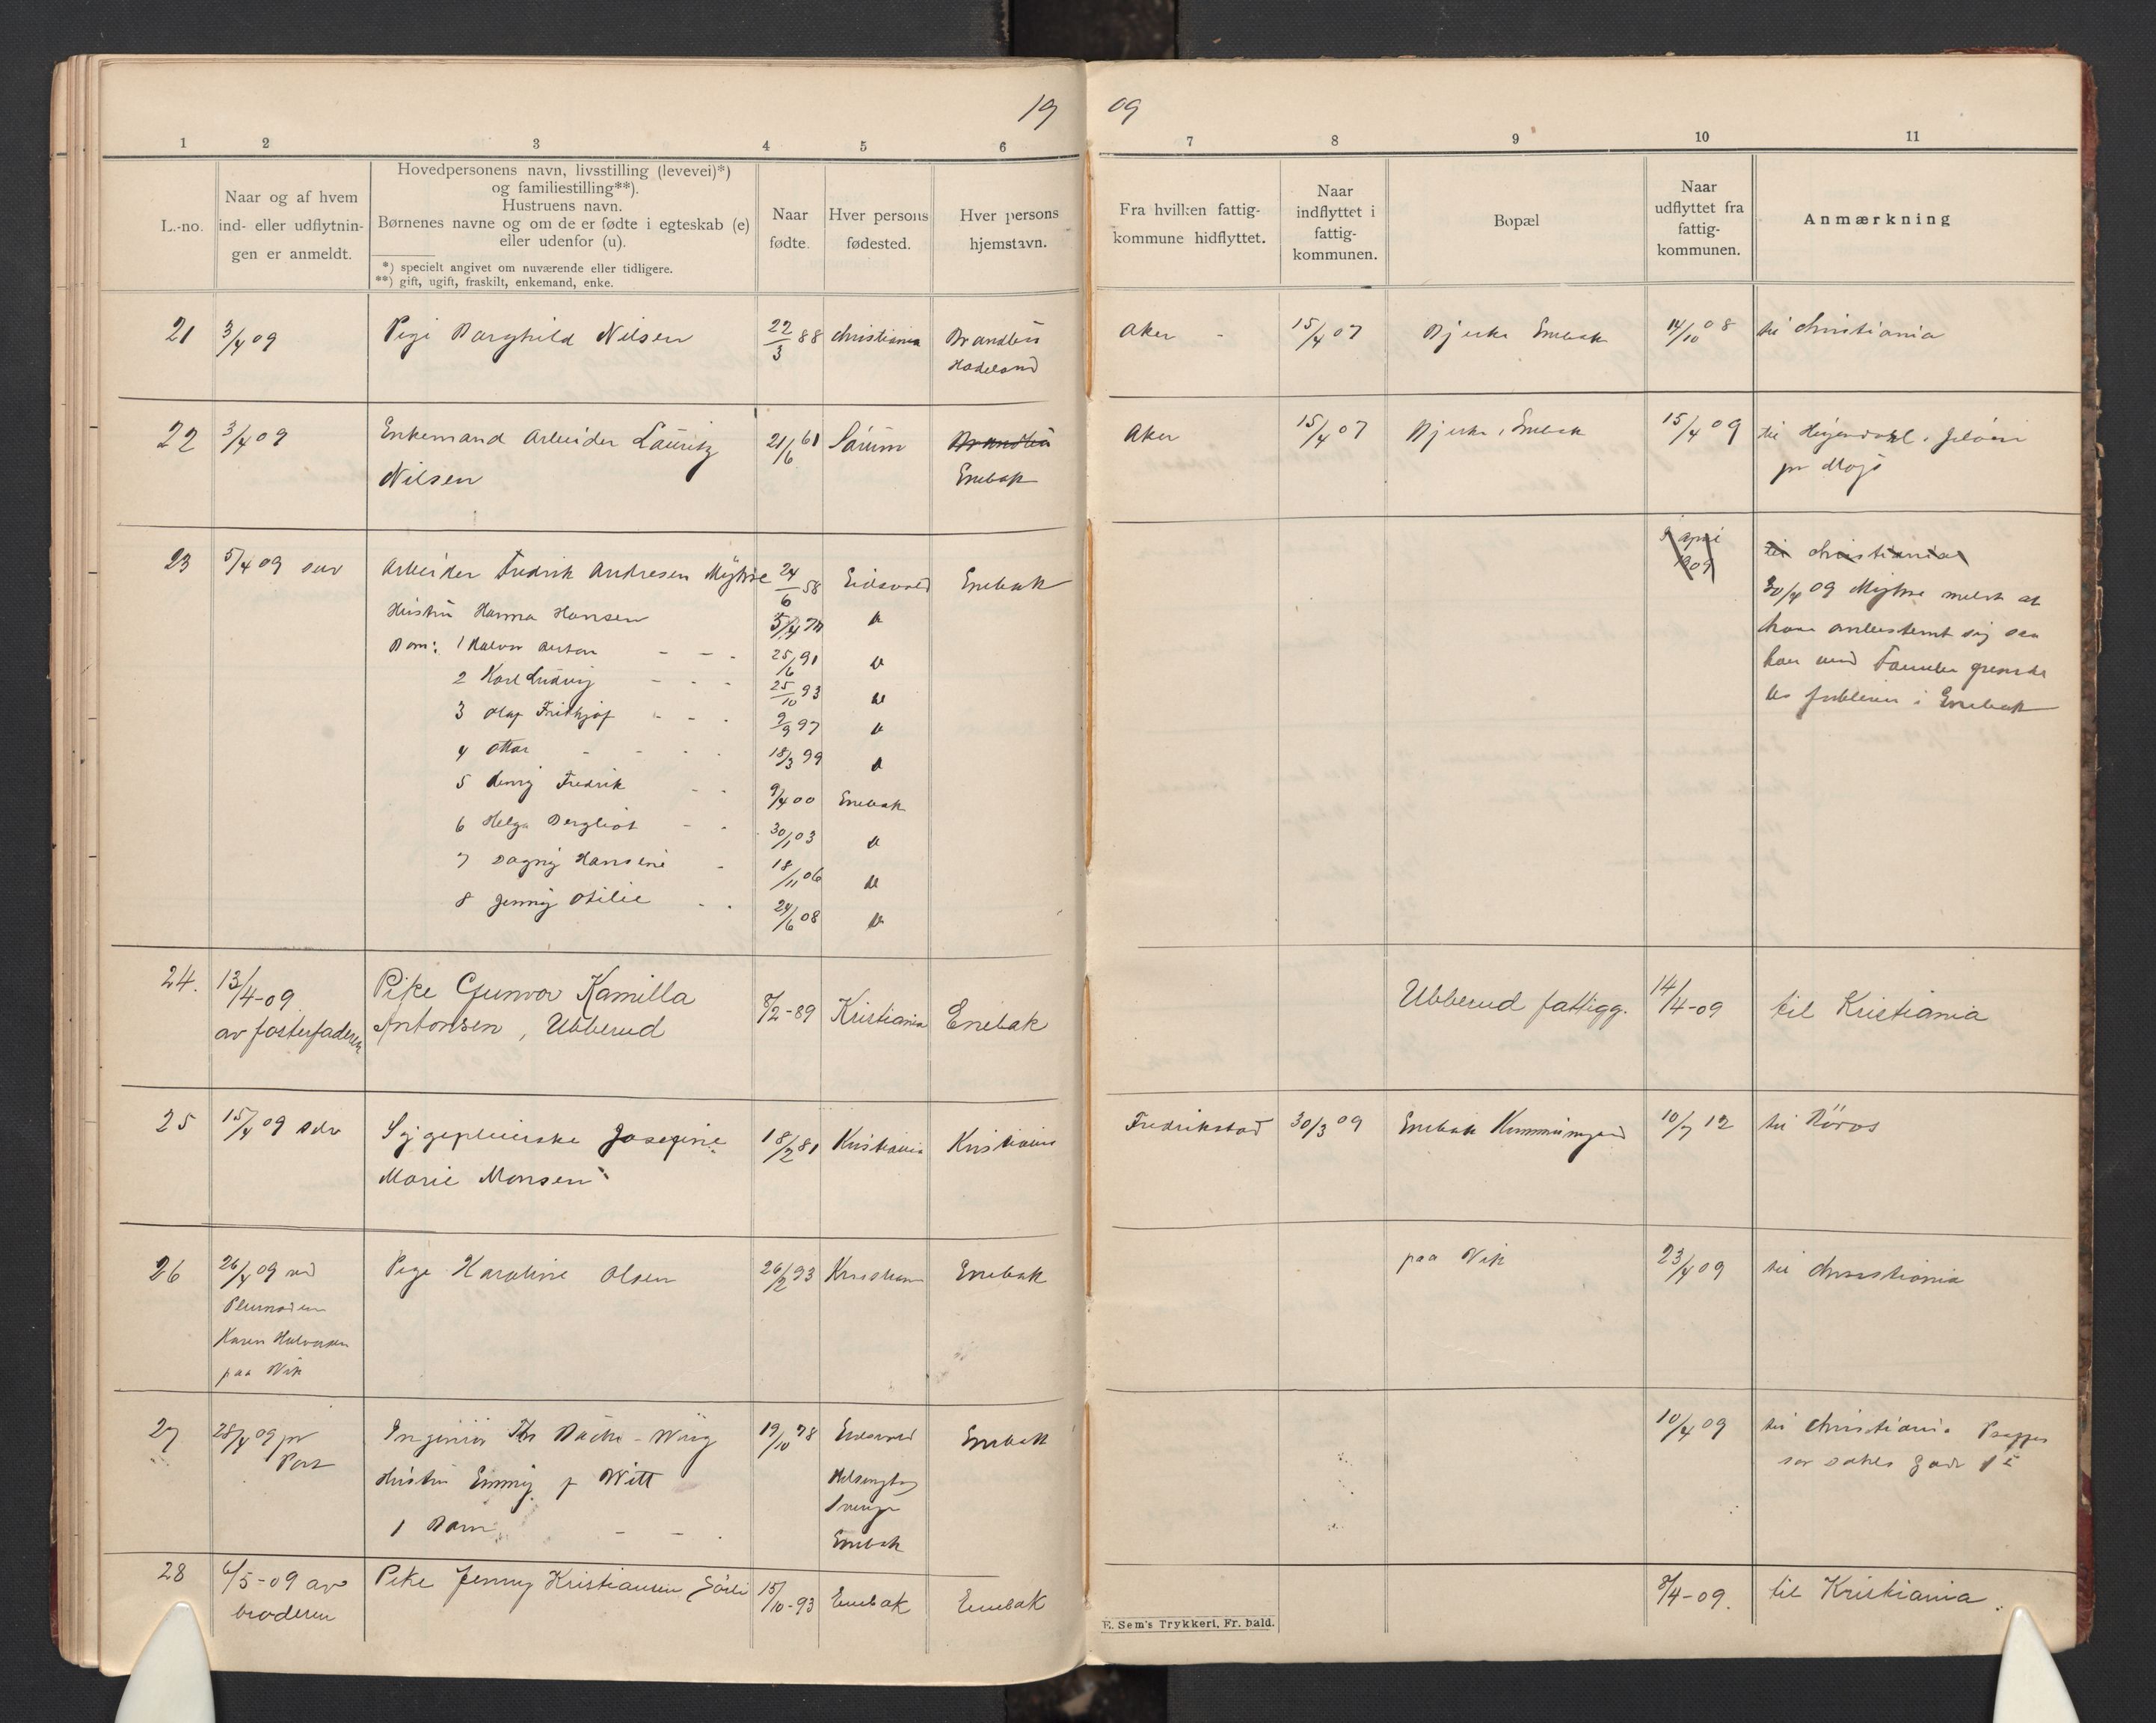 19 09
1 2 3 4 5 6 7 8 9 10 11
L.-no.
Naar og af hvem
ind- eller udflytnin-
gen er anmeldt.
Hovedpersonens navn, livsstilling (levevei)*)
og familiestilling**).
Hustruens navn.
Børnenes navne og om de er fødte i egteskab (e)
eller udenfor (u).
*) specielt angivet om nuværende eller tidligere.
**) gift, ugift, fraskilt, enkemand, enke.
Naar
fødte.
Hver persons
fødested.
Hver persons
hjemstavn.
Fra hvilken fattig-
kommune hidflyttet.
Naar
indflyttet i
fattig-
kommunen.
Bopæl
Naar
udflyttet fra
fattig-
kommunen.
Anmærkning
21 3/4 09 Pige Borghild Nilsen 22/3 88 Christiania Brandbu Aker - 15/4 07 Bjerke Enebak 14/10 08 til Christiania
Hadeland
22 3/4 09 Enkemand Arbeider Lauritz 21/6 61 Sørum Brandbu Aker 15/4 07 Bjerke, Enebak 15/4 09 til
Nilsen Enebak pr Moss
23 5/4 09 selv Arbeider Fredrik Andresen Myhre 24/6 58 Eidsvold Enebak april 1909 til Christiania
Hustru Hanna Hansen Do 30/4 09 Myhre meldt at
Barn: 1 Halvor Anton - - - 25/6 91 Do han ombestemt sig saa
2 Karl Ludvig - - - 25/10 93 Do han med Familie
3 Olaf Fridthjof - - - 9/9 97 Do i Enebak
4 Ottar - - - - 18/3 99 Do
5 Henry Fredrik - - 9/4 00 Enebak
6 Helga Bergliot - - 30/1 03 Do
7 Dagny Hansine - 18/11 06 Do
8 Jenny Otilie - - 24/6 08 Do
24. 13/4-09 Pike Gunvor Kamilla 8/2-89 Kristiania Enebak Ubberud fattigg. 14/4-09 til Kristiania
av fosterfaderen Antonsen, Ubberud
25 15/4 09 selv Sygepleierske Josefine 18/2 81 Kristiania Kristiania Fredrikstad 30/3 09 Enebak Kommungaard 10/7 12 til Röros
Marie Monsen
26 26/4 09 ved Pige Karoline Olsen 26/2 93 Kristiania Enebak paa Vik 23/4 09 til Christiania
Pleiemoderen
Karen Halvorsen
paa Vik
27 28/4 09 pr Ingeniør Th Bache-Wiig 19/10 78 Eidsvold Enebak 10/4 09 til Christiania
Post Hustru Emmy f Witt Helsingborg
Sverige
1 Barn - - . Enebak
28 6/5-09 av Pike Jenny Kristiansen Sørli 15/10-93 Enebak Enebak 8/4-09. til Kristiania.
broderen
E. Sem's Trykkeri, Fr. hald.